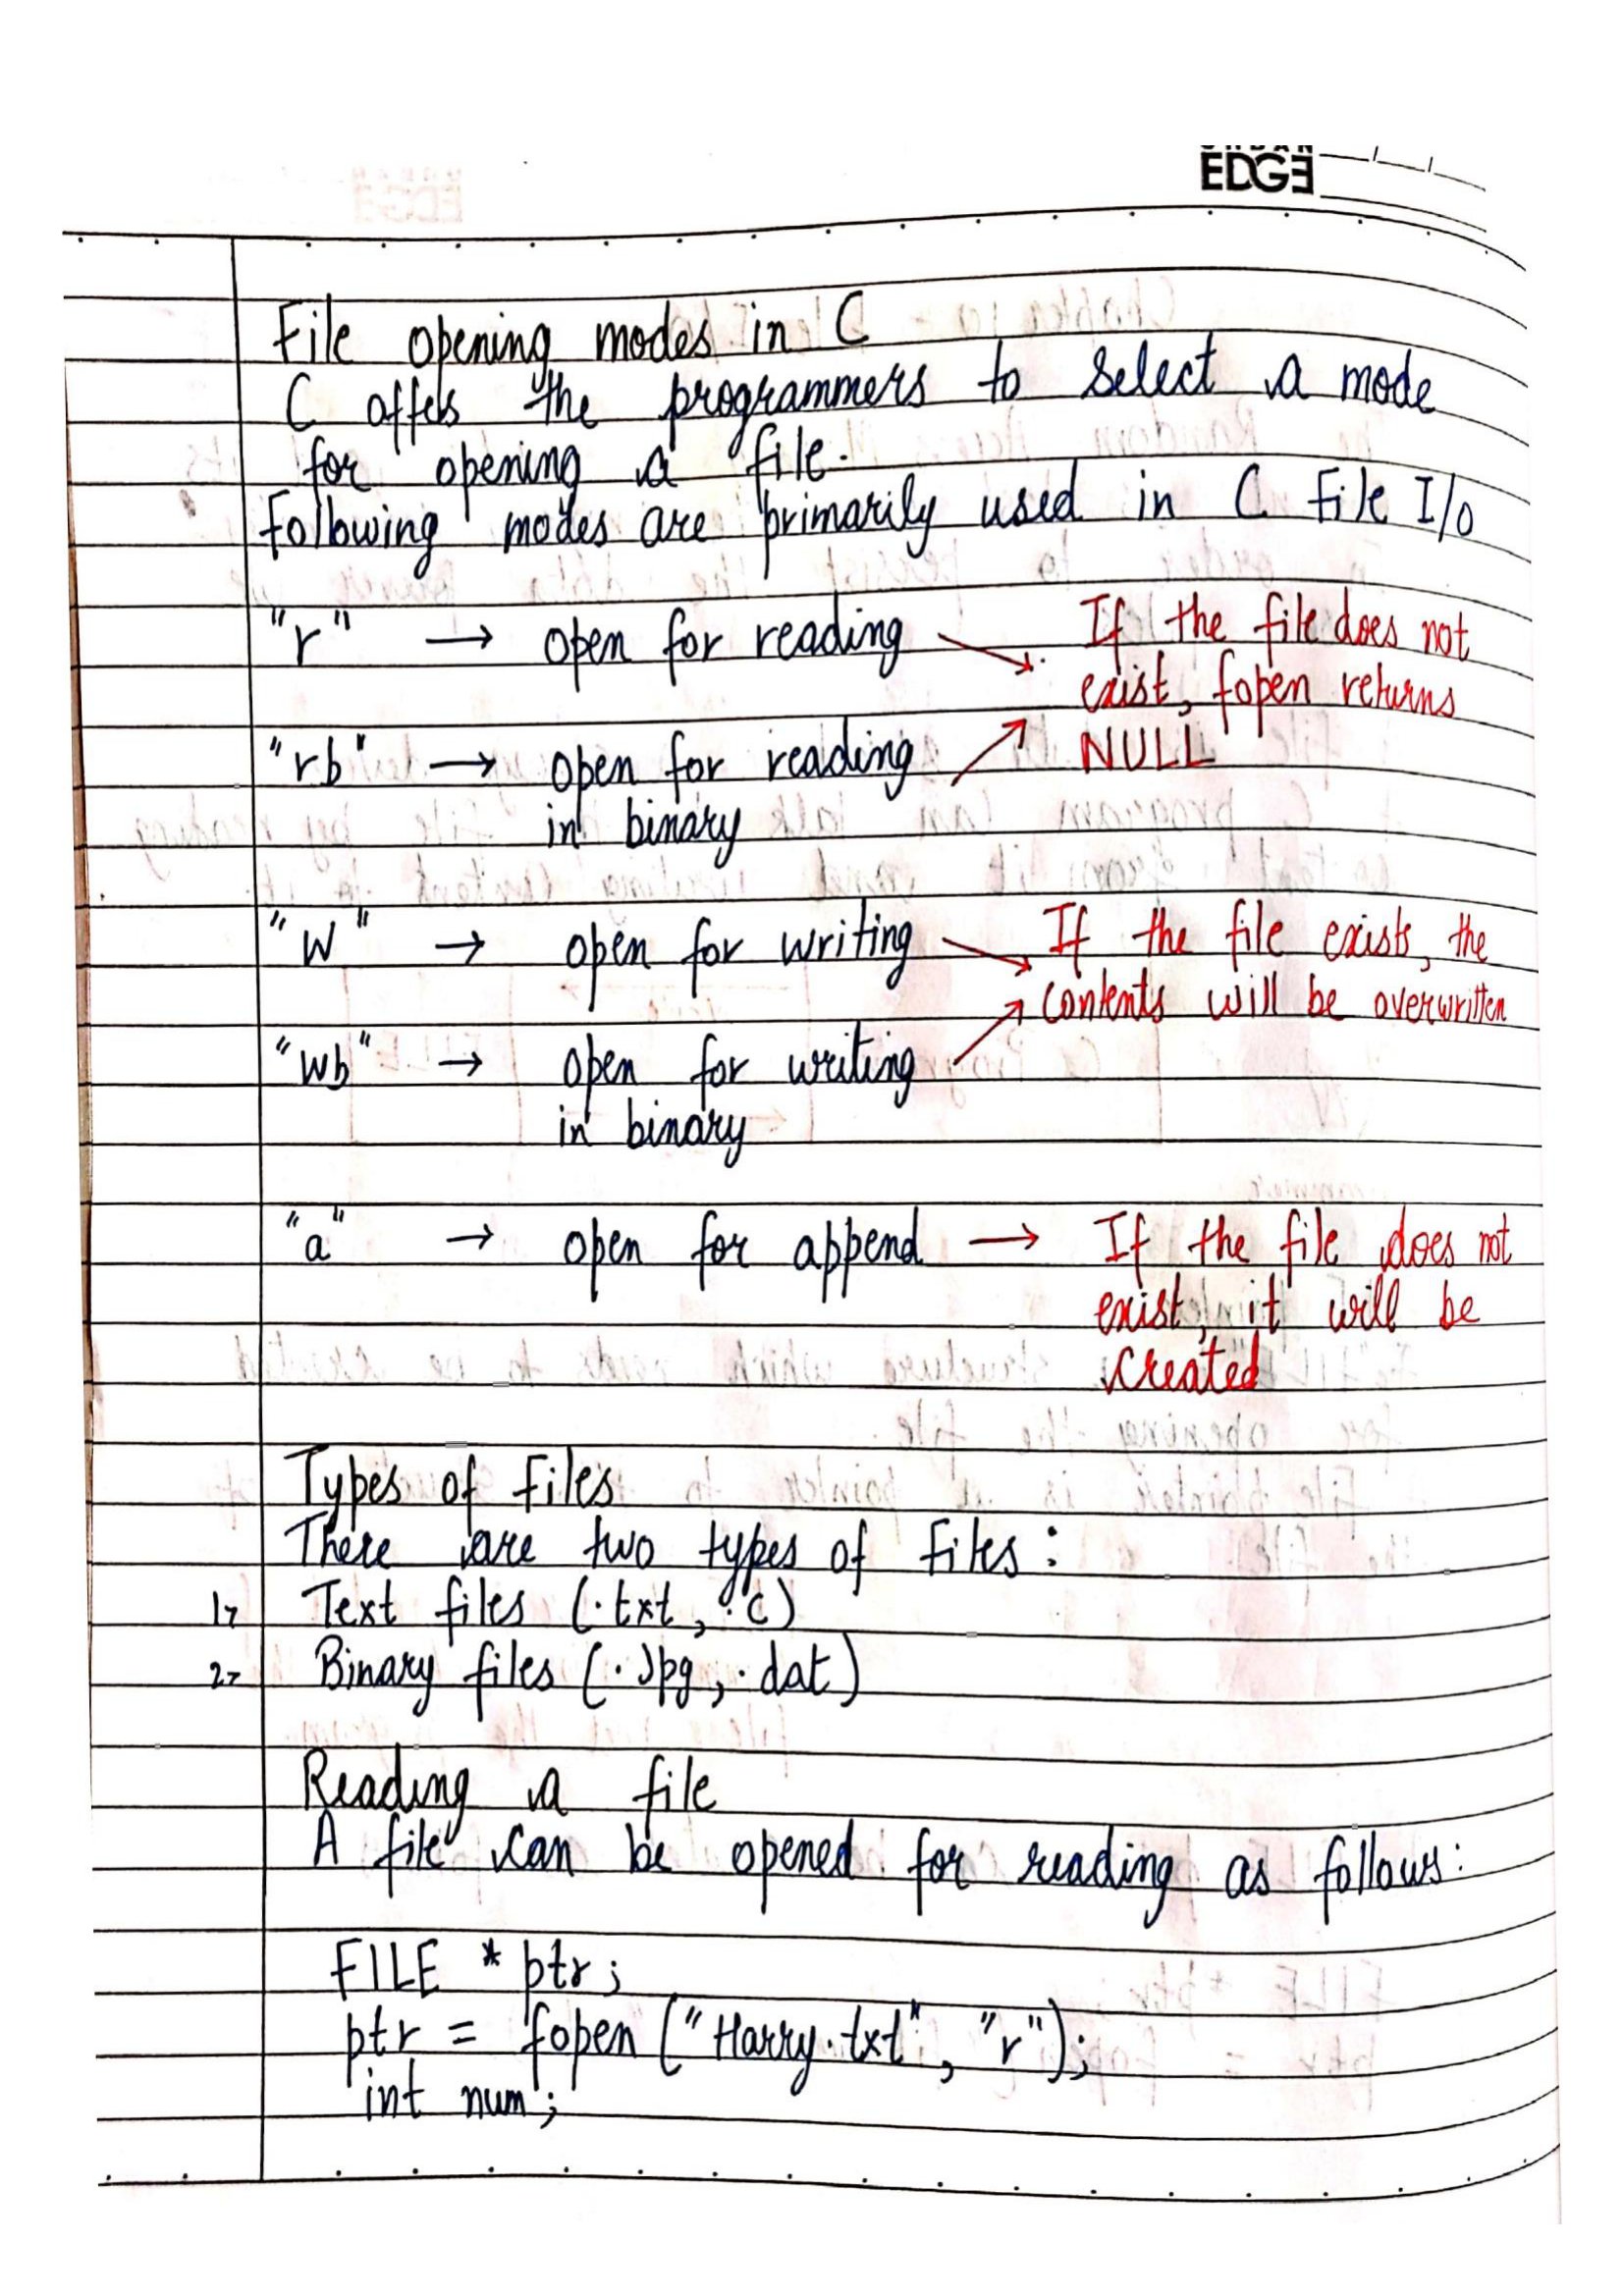 EDGE
File opening modes in C
C offers the programmers to select a mode
for opening a file.
Following modes are primarily used in C file I/o
"r" → open for reading → If the file does not
exist, fopen returns
"rb" → open for reading → NULL
in binary
"w" → open for writing → If the file exists, the
contents will be overwritten
"wb" → open for writing →
in binary
"a" → open for append → If the file does not
exist, it will be
created
Types of files
There are two types of files :
1> Text files (.txt, .c)
2> Binary files (.jpg, .dat)
Reading a file
A file can be opened for reading as follows:
FILE * ptr ;
ptr = fopen ("Harry.txt", "r");
int num ;